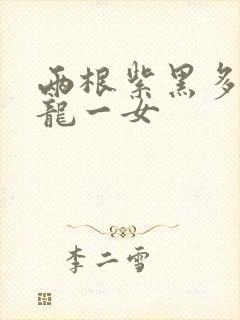 兩根紫黑多
龍一女
李二雪